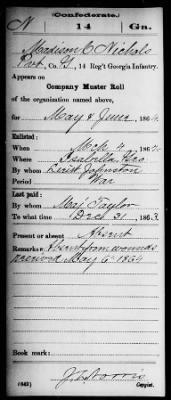 (Confederate.)
N 14 Ga.
Madison C Nichols
Pvt, Co. G, 14 Reg't Georgia Infantry.
Appears on
Company Muster Roll
of the organization named above,
for May & June, 1864.
Enlisted:
When Mch 4, 186
Where
By whom Lieut Johnston
Period War
Last paid:
By whom Maj. Taylor
To what time Dec 31, 1863.
Present or absent Absent
Remarks: Absent from wounds
received May 6" 1864
Book mark:
(642)
Copyist.